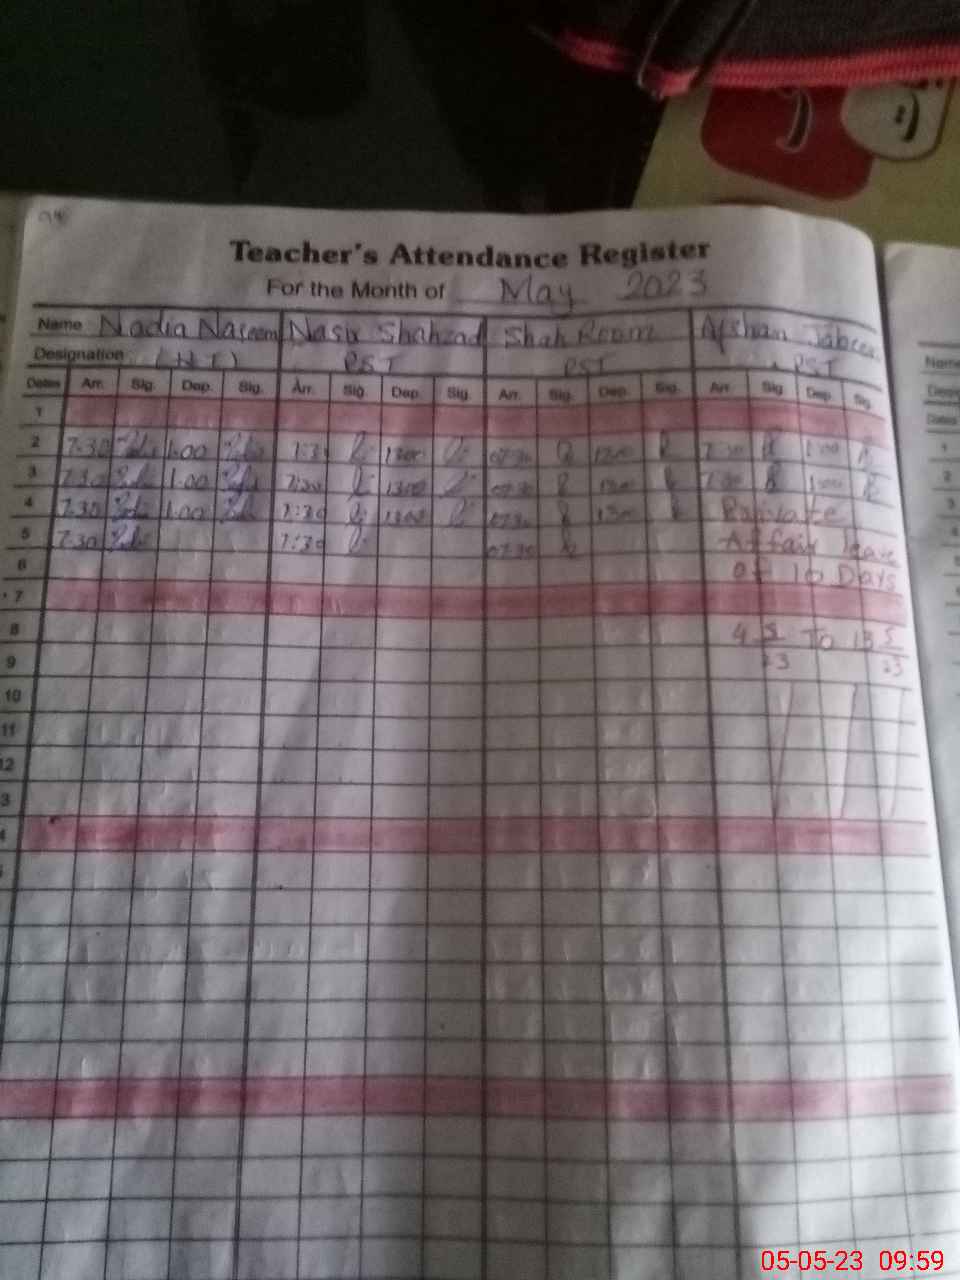 Teacher's Attendance Register
For the Month of May 2023
Name Nadia Naseem Nasir Shahzad Shah Room Afshan Jabeen
Designation (HT) PST PST PST
Dates Arr. Sig. Dep. Sig. Arr. Sig. Dep. Sig. Arr. Sig. Dep. Sig. Arr. Sig. Dep. Sig.
1
2 7.30 1.00 7:30 1300 07:30 1300 7:30 1:00
3 7.30 1.00 7:30 1300 07:30 1300 7:30 1:00
4 7.30 1.00 7:30 1300 07:30 1300 Private
5 7.30 7:30 07:30 Affair leave
6 of 10 Days
7
8 4 5/23 To 13 5/23
9
10
11
12
3
4
Name
Dates
1
2
3
4
5
6
7
8
9
05-05-23 09:59